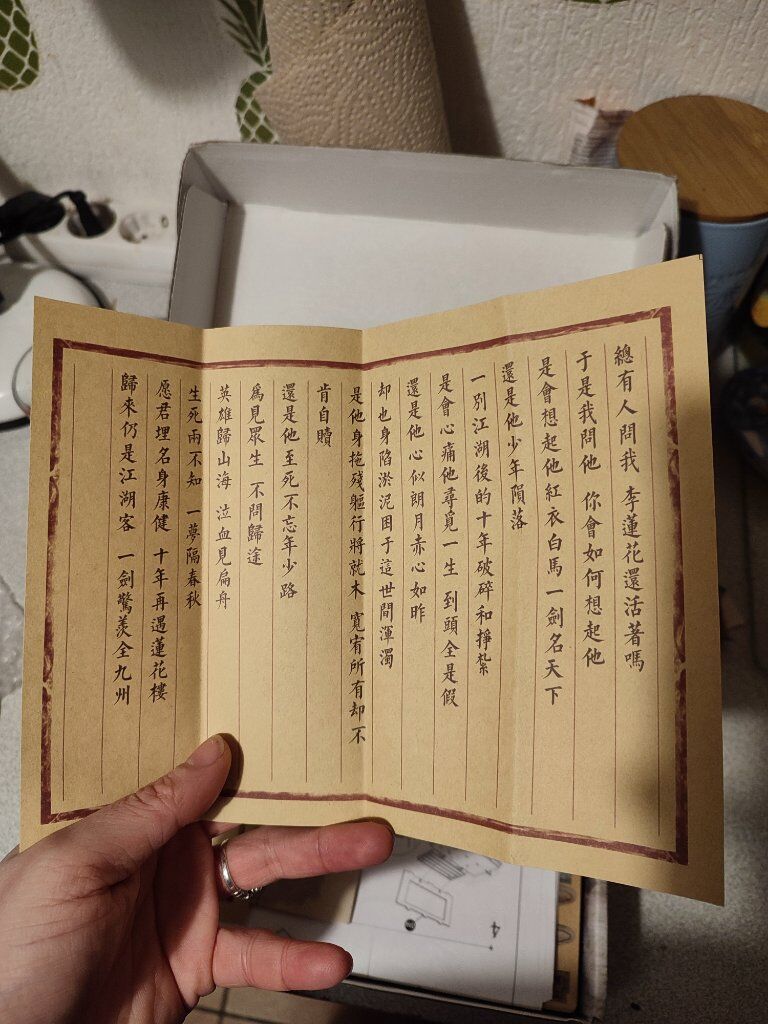 總有人問我 李蓮花還活著嗎
于是我問他 你會如何想起他
是會想起他紅衣白馬一劍名天下
還是他少年隕落
一別江湖後的十年破碎和掙紮
是會心痛他尋覓一生 到頭全是假
還是他心似朗月赤心如昨
却也身陷淤泥困于這世間渾濁
是他身拖殘軀行將就木 寬宥所有却不
肯自贖
還是他至死不忘年少路
爲見眾生 不問歸途
英雄歸山海 泣血見扁舟
生死兩不知 一夢隔春秋
愿君埋名身康健 十年再遇蓮花樓
歸來仍是江湖客 一劍驚羨全九州
4